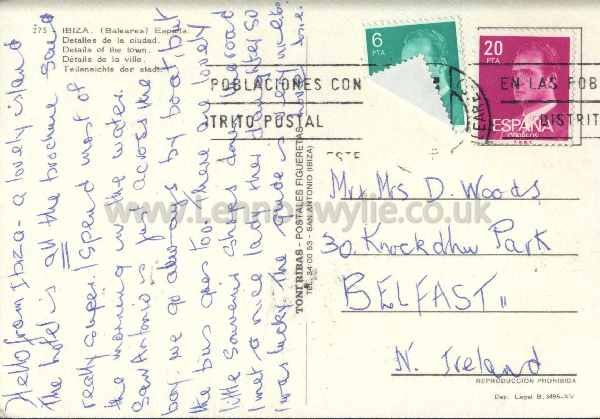 275 - IBIZA. (Baleares) España.
Detalles de la ciudad.
Details of the town.
Détails de la ville.
Teilansichts der stadt.
Hello from Ibiza - a lovely island
The hotel is all the brochure said
really super. I spend most of
the morning in the water.
San Antonio is just across the
bay. we go always by boat but
the bus goes too. There are lovely
little souvenir shops down the road
I met a nice lady & her daughter so
I was lucky. The pude is
6
PTA
20
PTA
ESPAÑA
CORREOS
POBLACIONES CON
TRITO POSTAL
ESTE
EN LAS POB
DISTRIT
TONI RIBAS - POSTALES FIGUERETAS
TEL. 34 00 53 - SAN ANTONIO (IBIZA)
Mr & Mrs D. Woods
30, Knockdhu Park
BELFAST 11
N. Ireland
REPRODUCCIÓN PROHIBIDA
Dep. Legal B. 3496-XV
www.Lennonwylie.co.uk